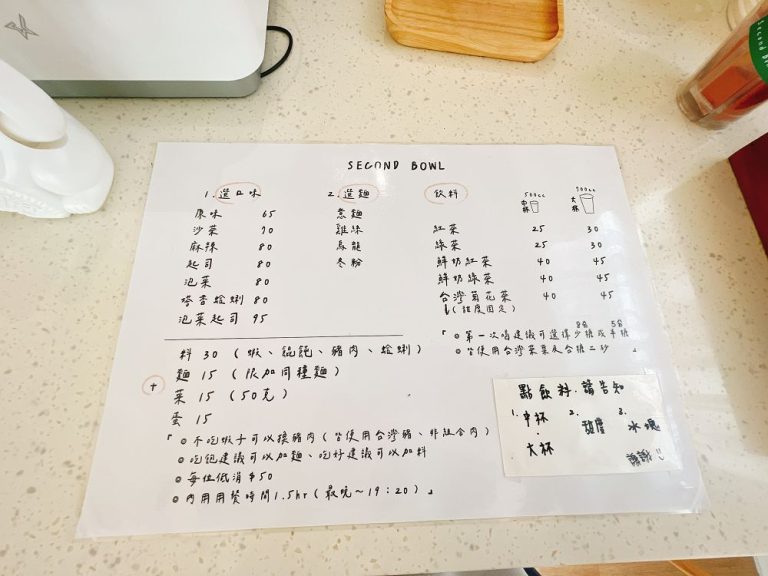 SECOND BOWL
1. 選口味
原味 65
沙茶 70
麻辣 80
起司 80
泡菜 80
塔香蛤蜊 80
泡菜起司 95
2. 選麵
意麵
雞絲
烏龍
冬粉
飲料 500cc 中杯 700cc 大杯
紅茶 25 30
綠茶 25 30
鮮奶紅茶 40 45
鮮奶綠茶 40 45
台灣菊花茶 40 45
(甜度固定)
「◎第一次喝建議可選擇少糖或半糖
◎皆使用台灣茶葉及台糖二砂」
+
料 30 (蝦、餛飩、豬肉、蛤蜊)
麵 15 (限加同種麵)
菜 15 (50克)
蛋 15
「◎不吃蝦子可以換豬肉(皆使用台灣豬、非組合肉)
◎吃飽建議可以加麵、吃好建議可以加料
◎每位低消$50
◎內用用餐時間1.5hr(最晚~19:20)」
點飲料.請告知
1. 中杯 2. 甜度 3. 冰塊
大杯
謝謝